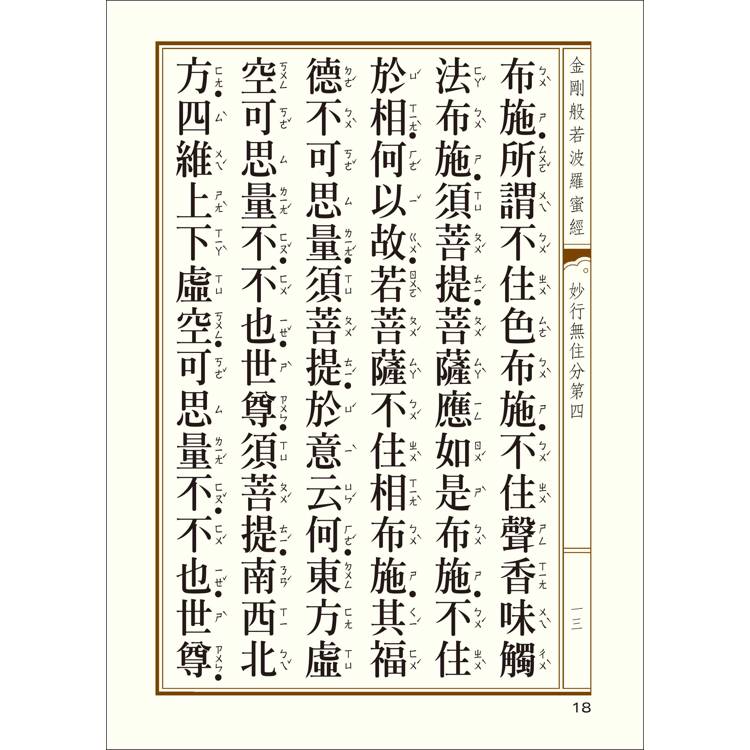 金剛般若波羅蜜經
妙行無住分第四
一三
布施所謂不住色布施不住聲香味觸
法布施須菩提菩薩應如是布施不住
於相何以故若菩薩不住相布施其福
德不可思量須菩提於意云何東方虛
空可思量不不也世尊須菩提南西北
方四維上下虛空可思量不不也世尊
18